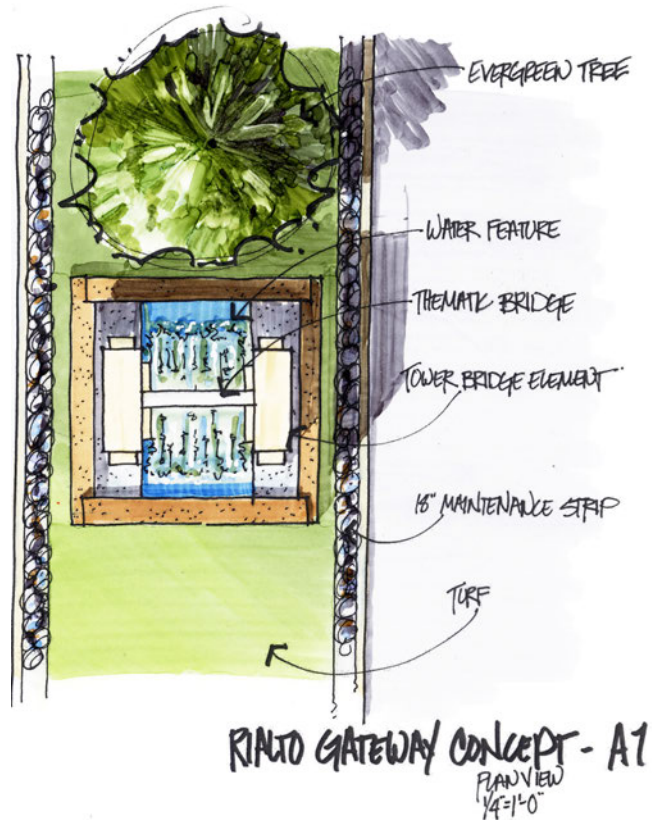 EVERGREEN TREE
WATER FEATURE
THEMATIC BRIDGE
TOWER BRIDGE ELEMENT
18" MAINTENANCE STRIP
TURF
RIALTO GATEWAY CONCEPT - A1
PLAN VIEW
1/4"=1'-0"